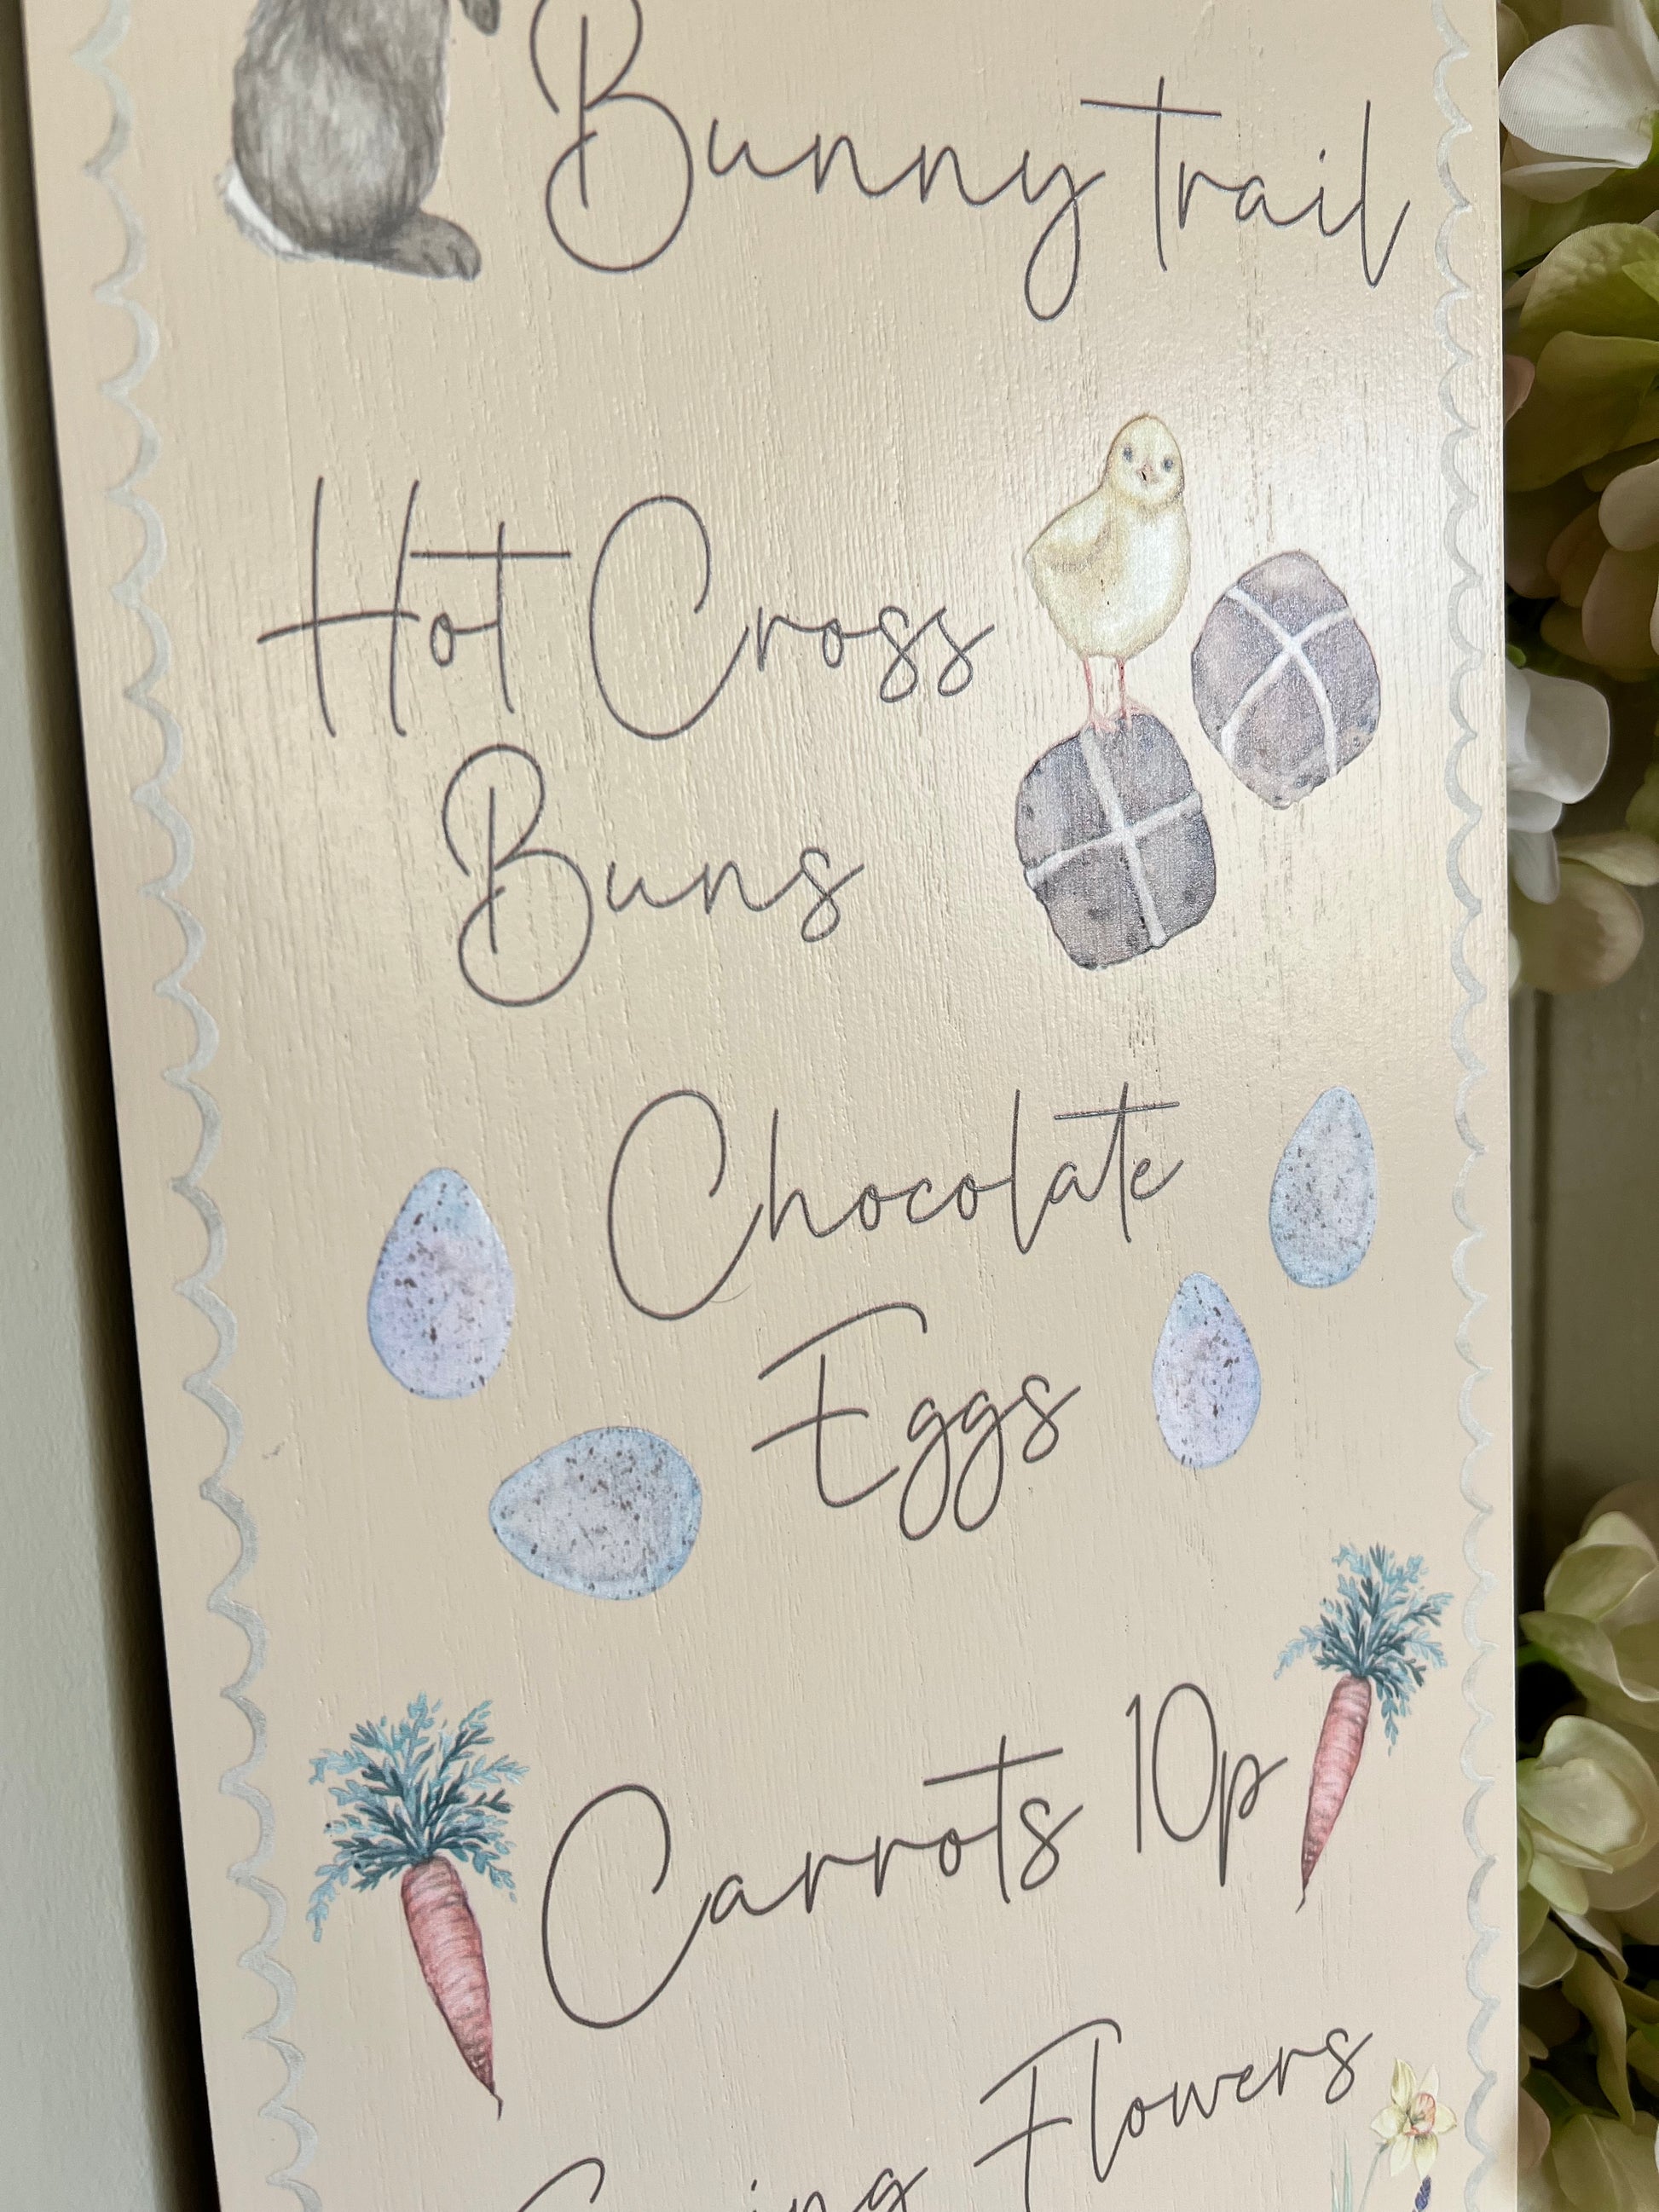 Bunny trail
Hot Cross
Buns
Chocolate
Eggs
Carrots 10p
Flowers